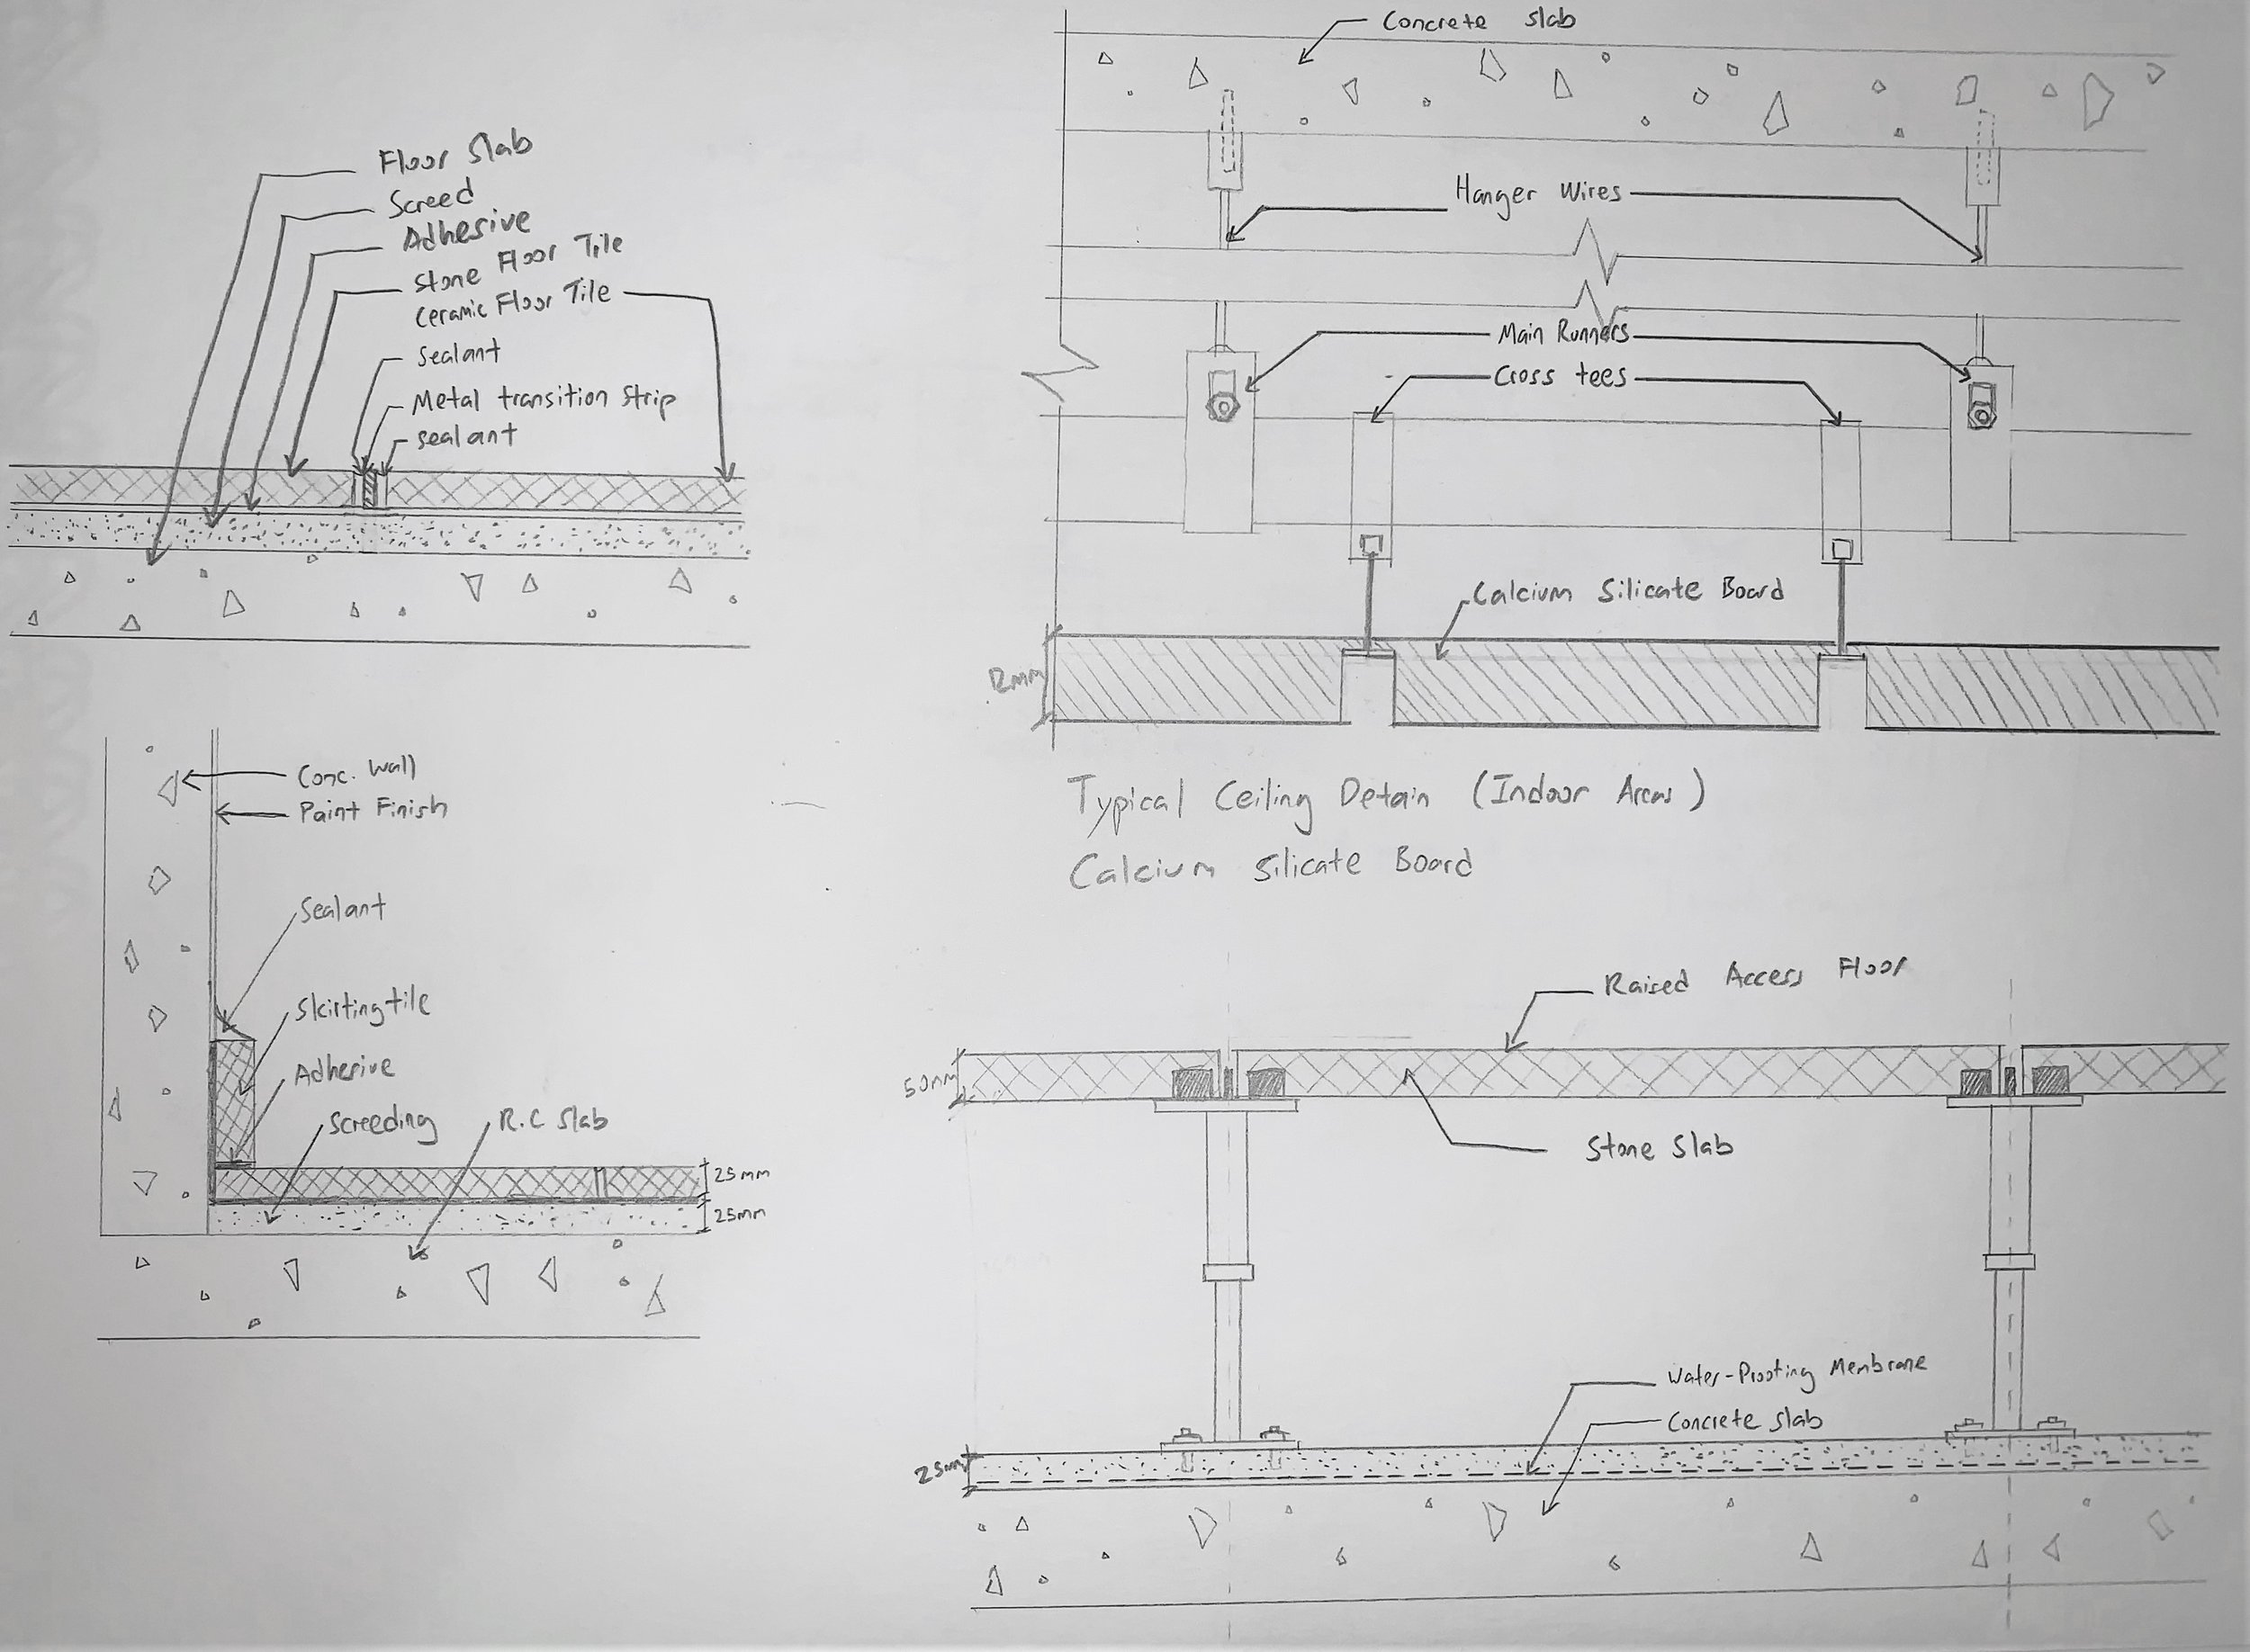 Floor Slab
Screed
Adhesive
Stone Floor Tile
Ceramic Floor Tile
Sealant
Metal transition Strip
Sealant
Concrete slab
Hanger Wires
Main Runners
Cross tees
Calcium Silicate Board
12mm
Typical Ceiling Detain (Indoor Areas)
Calcium Silicate Board
Conc. Wall
Paint Finish
Sealant
Skirting tile
Adhesive
Screeding
R.C Slab
25mm
25mm
Raised Access Floor
50mm
Stone Slab
Water-Proofing Membrane
Concrete slab
25mm